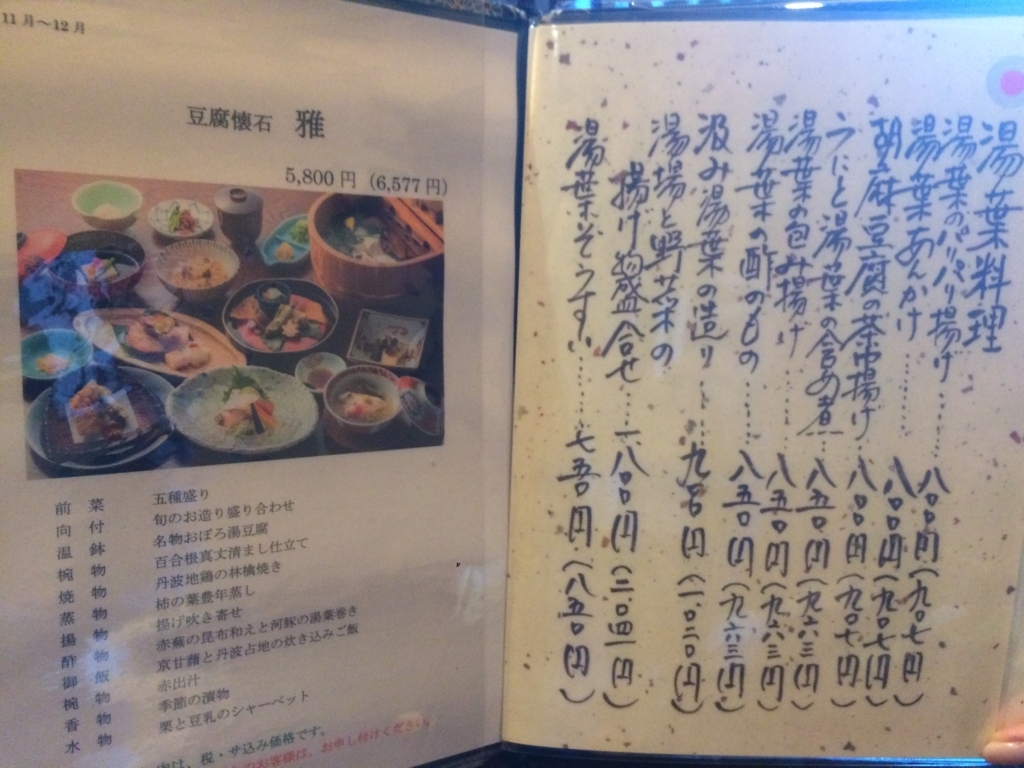 11月～12月
豆腐懐石 雅
5,800円 (6,577円)
前菜 五種盛り
向付 旬のお造り盛り合わせ
温鉢 名物おぼろ湯豆腐
椀物 百合根真丈清まし仕立て
焼物 丹波地鶏の林檎焼き
蒸物 柿の葉豊年蒸し
揚物 揚げ吹き寄せ
酢物 赤蕪の昆布和えと河豚の湯葉巻き
御飯 京甘藷と丹波占地の炊き込みご飯
椀物 赤出汁
香物 季節の漬物
水物 栗と豆乳のシャーベット
内は、税・サ込み価格です。
のお客様は、お申し付けください。
湯葉料理
湯葉のパリパリ揚げ……八〇〇円(九〇七円)
湯葉あんかけ……八〇〇円(九〇七円)
胡麻豆腐の茶巾揚げ…八〇〇円(九〇七円)
うにと湯葉の含め煮…八五〇円(九六三円)
湯葉の包み揚げ……八五〇円(九六三円)
湯葉の酢のもの……八五〇円(九六三円)
汲み湯葉の造り……九〇〇円(一、〇二〇円)
湯場と野菜の
揚げ物盛合せ…一、八〇〇円(二、〇四一円)
湯葉ぞうすい……七五〇円(八五〇円)